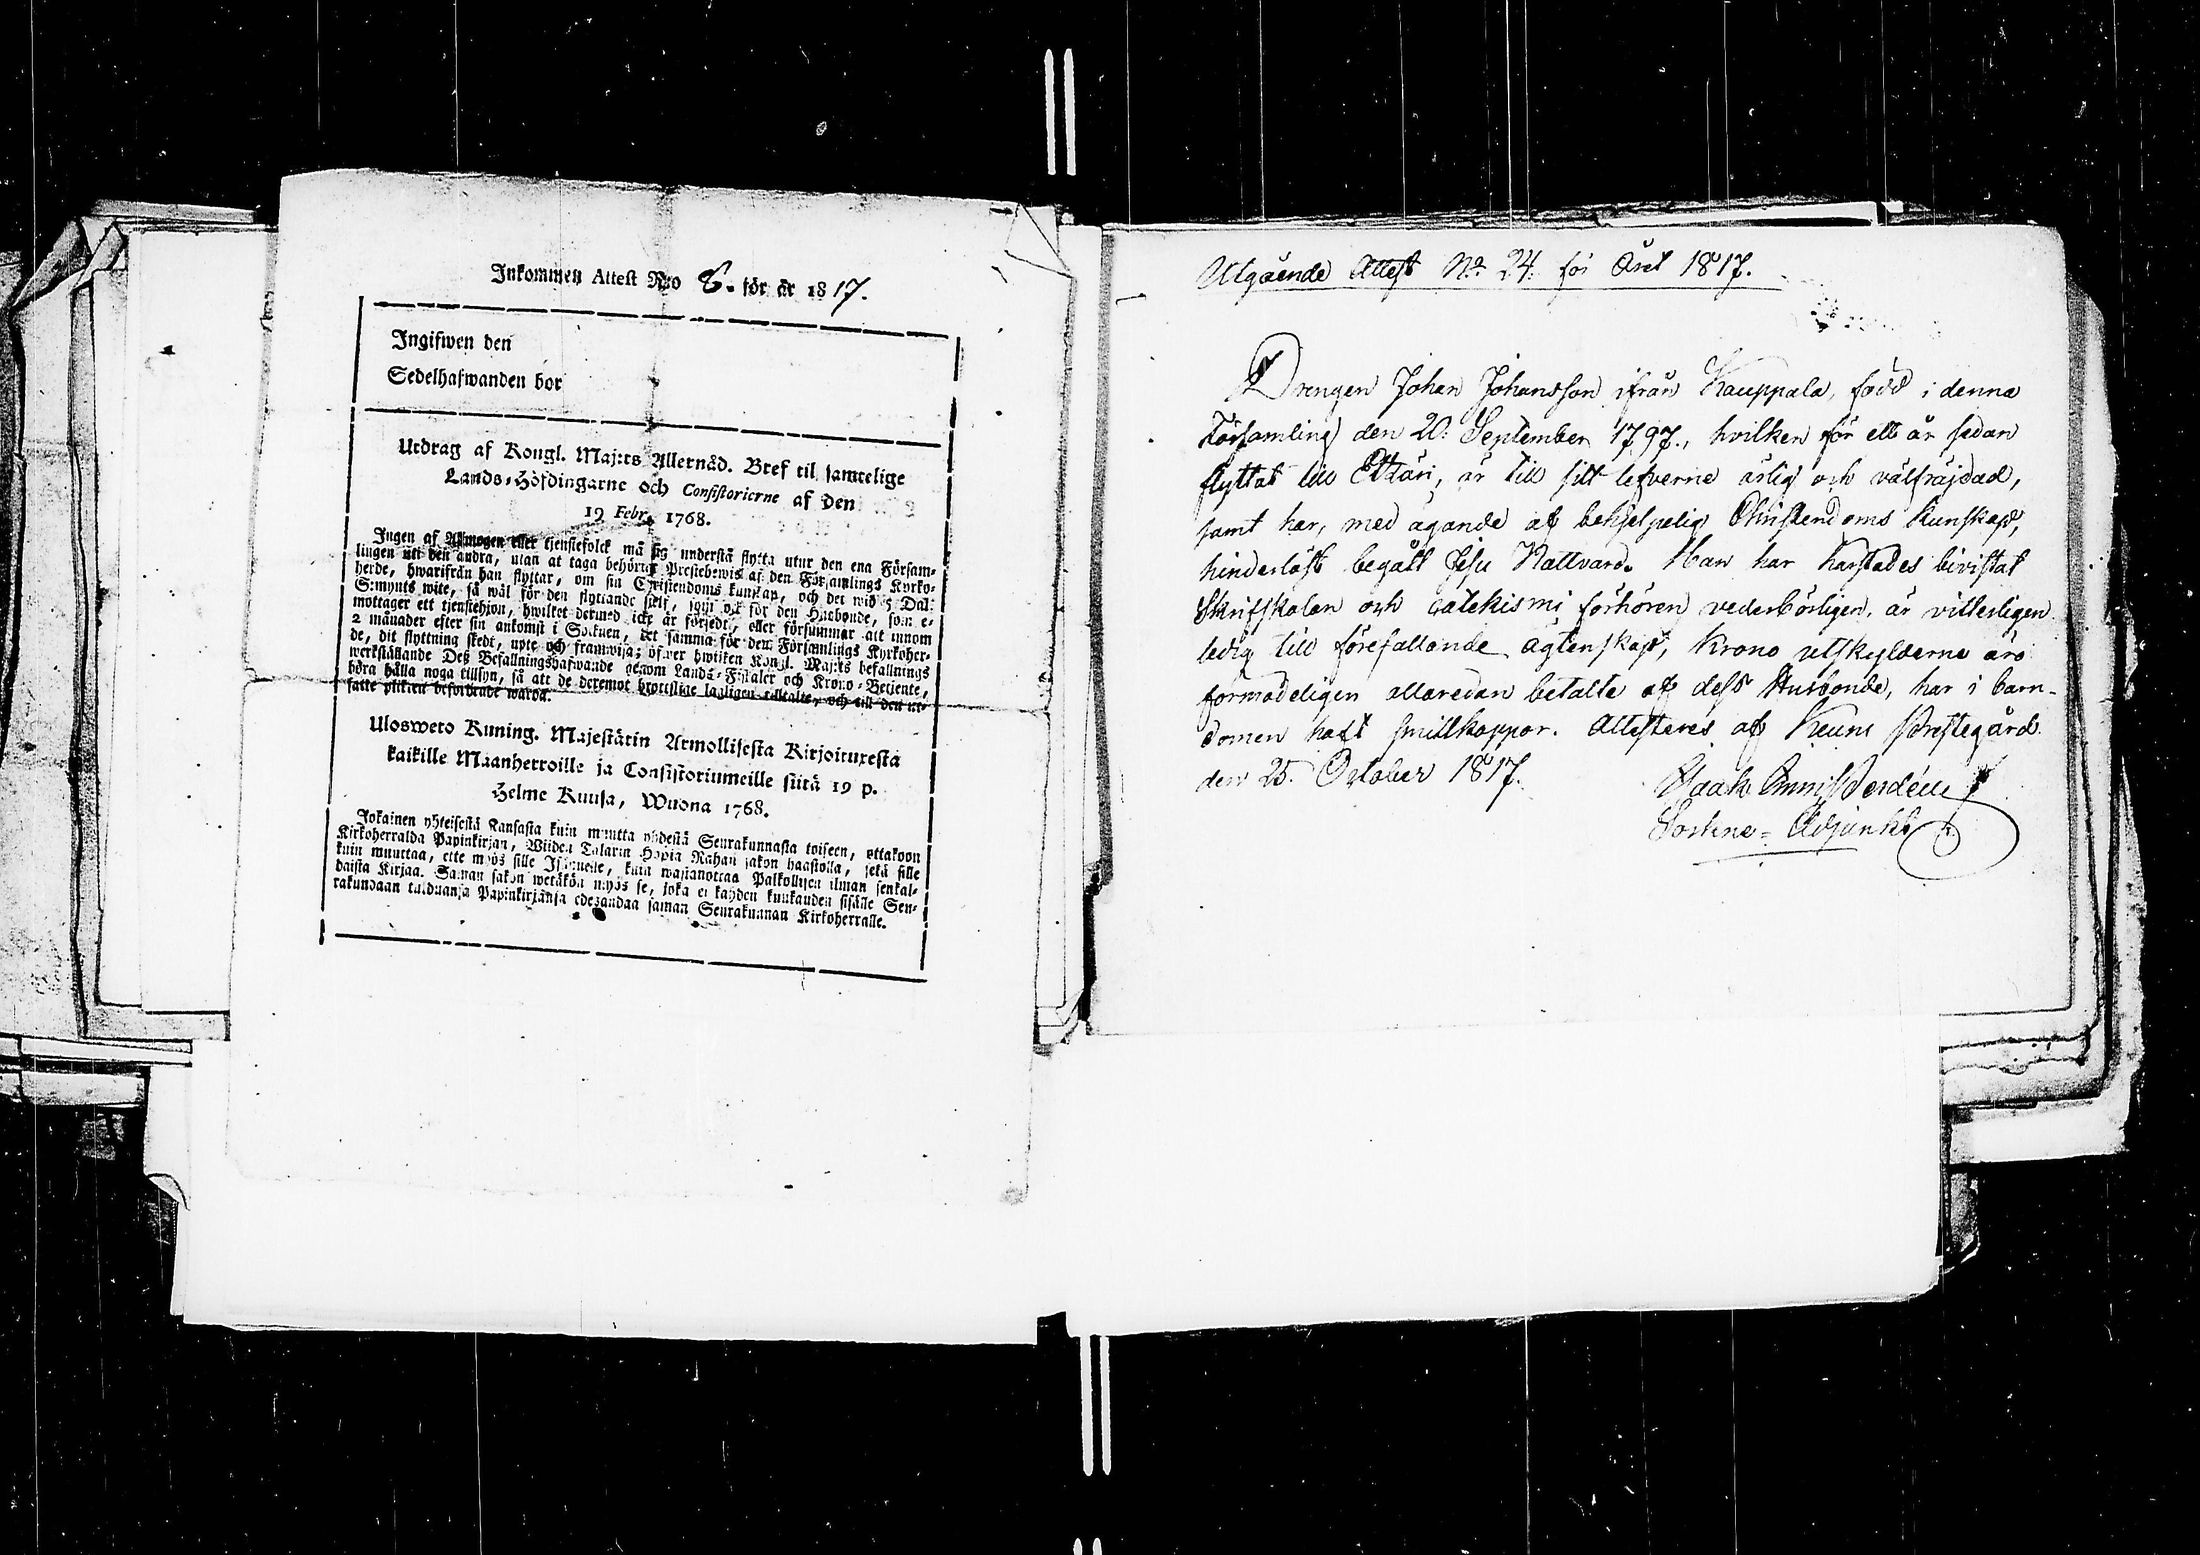 Inkommen Attest N:o 8. för år 1817.
Ingifwen den
Sedelhafwanden bor
Utdrag af Kongl. Maj:ts Allernåd. Bref til samtelige
Lands-Höfdingarne och Consistorierne af den
19 Febr. 1768.
Ingen af Allmogen eller tjenstefolck må sig understå flytta utur den ena Försam-
lingen uti den andra, utan at taga behörigt Prestebewis af den Församlings Kyrko-
herde, hwarifrån han flyttar, om sin Christendoms kunskap, och det wid 5 Dal:
S:mynts wite, så wäl för den flyttande sielf, som ock för den Husbonde, som e-
mottager ett tjenstehjon, hwilket dermed icke är försedt, eller försummar att innom
2 månader efter sin ankomst i Socknen, det samma för dem Församlings Kyrkoher-
de, dit flyttning skedt, upte och framwisa; öfwer hwilken Kongl. Maj:ts befallnings
werkställande Deß Befallningshafwande genom Lands-Fiskaler och Krono-Betjente,
böra hålla noga tillsyn, så att de deremot brottslige lagligen tilltalte, och till den ut-
satte plikten befordrade warda.
Ulosweto Kuning. Majestätin Armollisesta Kirjoituxesta
kaikille Maanherroille ja Consistoriumeille siitä 19 p.
Helme Kuusa, Wuona 1768.
Jokainen yhteisestä Kansasta kuin muutta yhdestä Seurakunnasta toiseen, ottakoon
Kirkoherralda Papinkirjan, Wiiden Talarin Hopia Rahan sakon haastolla, sekä sille
kuin muuttaa, ette myös sille Isännelle, kuin wastanottaa Palkollisen ilman senkal-
daista Kirjaa. Saman sakon wetäkön myös se, joka ei kahden kuukauden sisälle Seu-
rakundaan tulduansa Papinkirjansa edesandaa saman Seurakunnan Kirkoherralle.
Utgående Attest No. 24. för Året 1817.
Drengen Johan Johansson ifrån Kauppala, född i denna
Församling den 20. September 1797., hvilken för ett år sedan
flyttat till Ettäri, är till sitt lefverne ärlig och välfräjdad,
samt har, med ägande af behjelpelig Christendoms Kunskap,
hinderlöst begått Jesu Nattvard. Han har härstädes bivistat
Skriftskolan och catekismi förhören vederbörligen, är vitterligen
ledig till förefallande ägtenskap, Krono utskylderne äro
förmodeligen allaredan betalte af dess Husbonde, har i barn-
domen haft smittkoppor. Attesteres af Keuru Prestegård
den 25. October 1817.
Sockne-Adjunkt